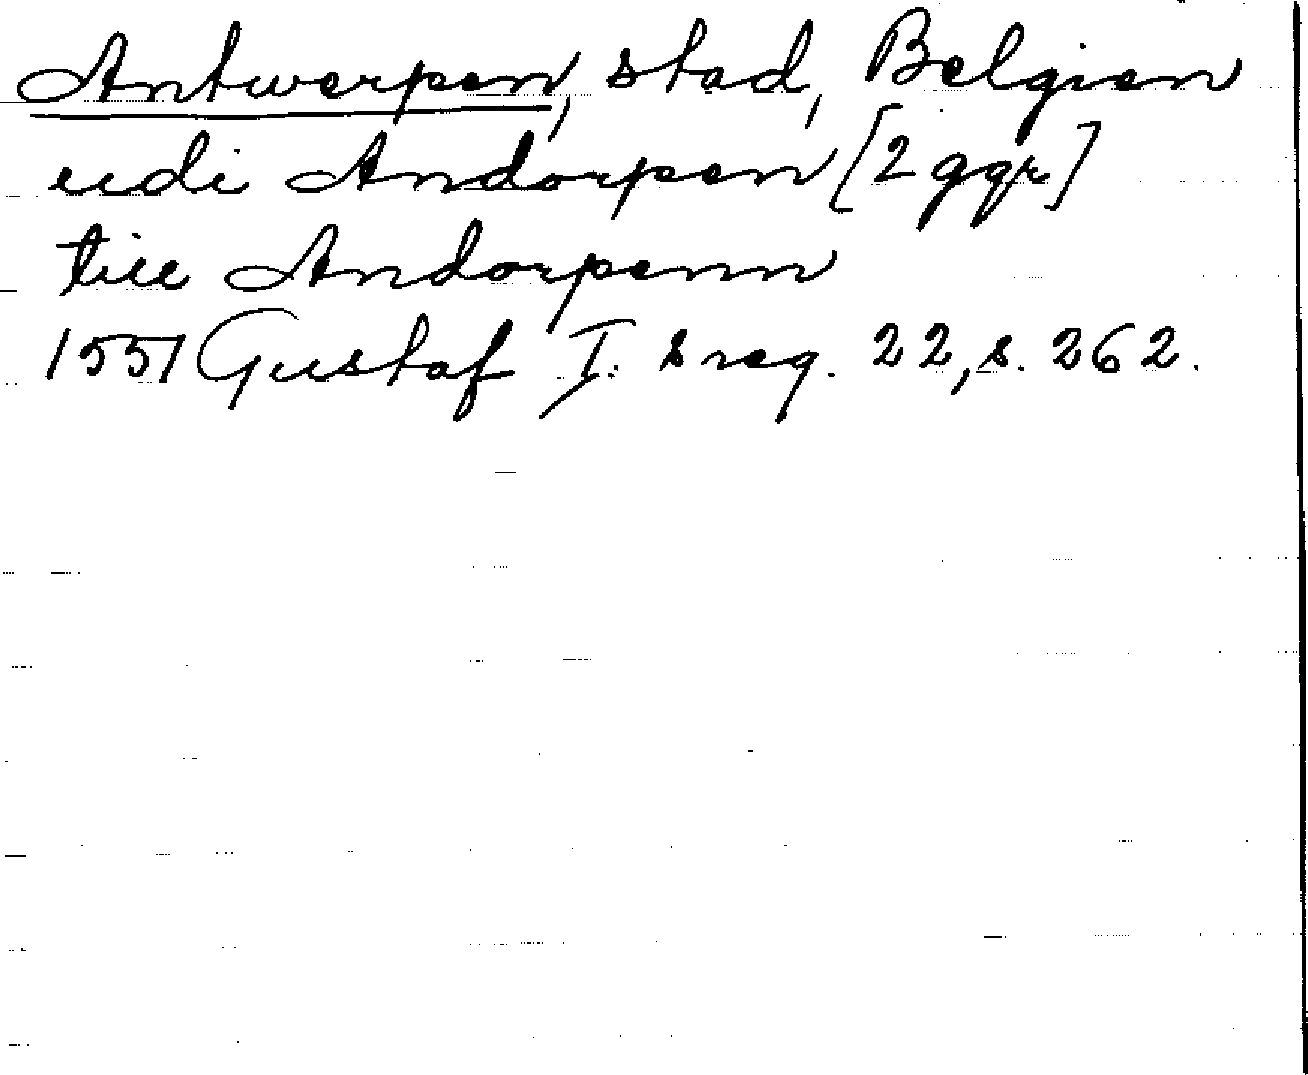 Antwerpen, stad, Belgien
udi Andorpen [2 ggr]
till Andorpenn
1551 Gustaf I:s reg. 22, s. 262.